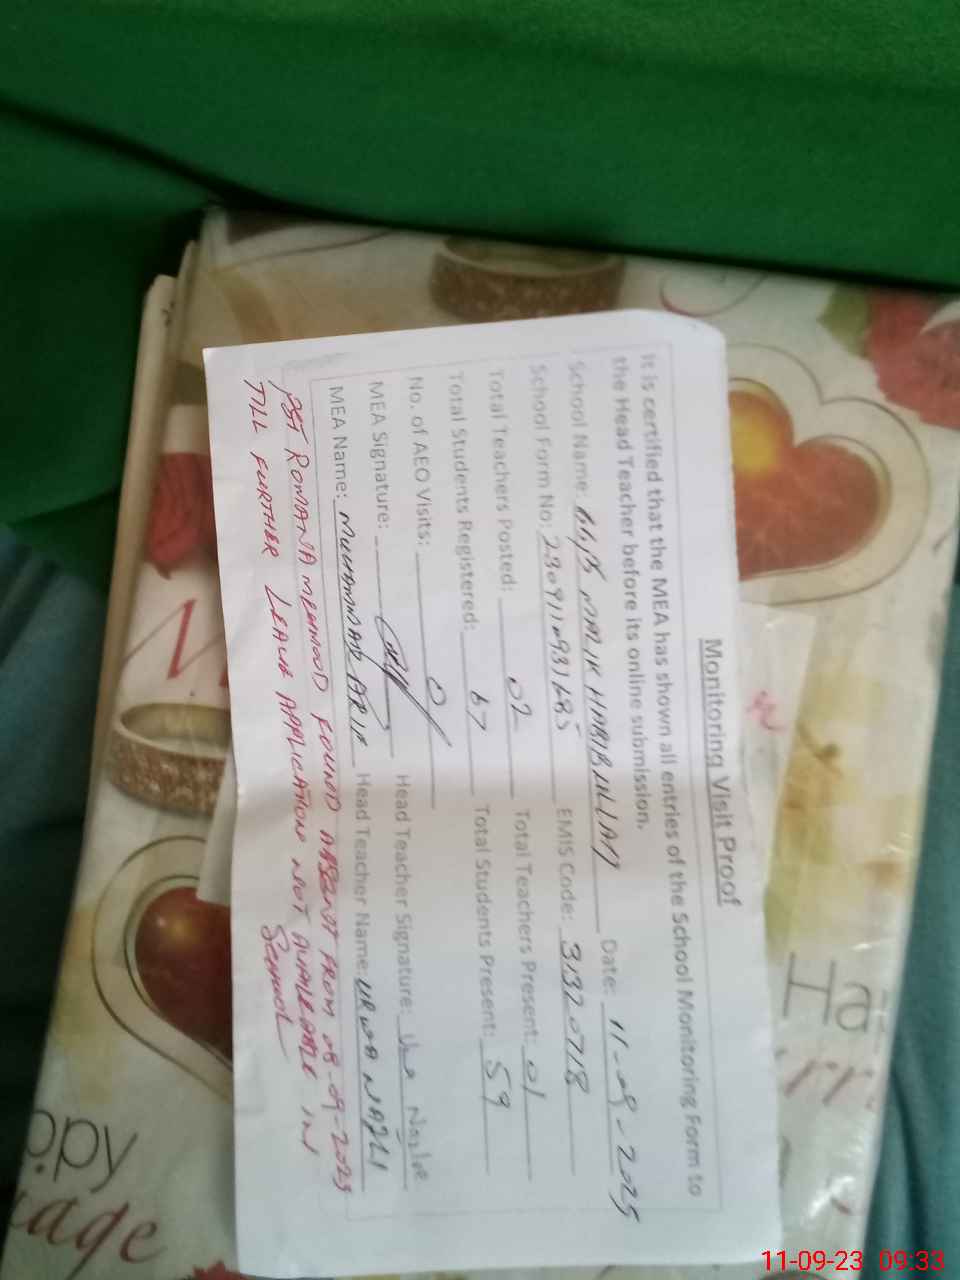 Monitoring Visit Proof
It is certified that the MEA has shown all entries of the School Monitoring Form to
the Head Teacher before its online submission.
School Name: GGPS MALIK HABIBULLAH Date: 11-09-2025
School Form No: EMIS Code: 31320718
Total Teachers Posted: 02 Total Teachers Present: 01
Total Students Registered: 67 Total Students Present: 59
No. of AEO Visits: 01
MEA Signature: Head Teacher Signature:
MEA Name: MUHAMMAD ARIF Head Teacher Name: URWA NAZLI
PST ROMANA MEHMOOD FOUND ABSENT FROM 08-09-2025
TILL FURTHER LEAVE APPLICATION NOT AVAILABLE IN
SCHOOL
Ha
ppy
11-09-23 09:33